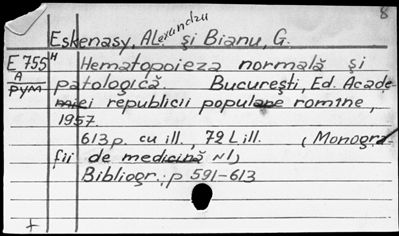 8
Eskenasy, Alexandru și Bianu, G.
E 755 H Hematopoieza normală și
A patologică. București, Ed. Acade-
PYM miei republicii populare romîne,
1957
613 p. cu ill., 72 L ill. (Monogra-
fii de medicină N1)
Bibliogr.: p 591-613
+